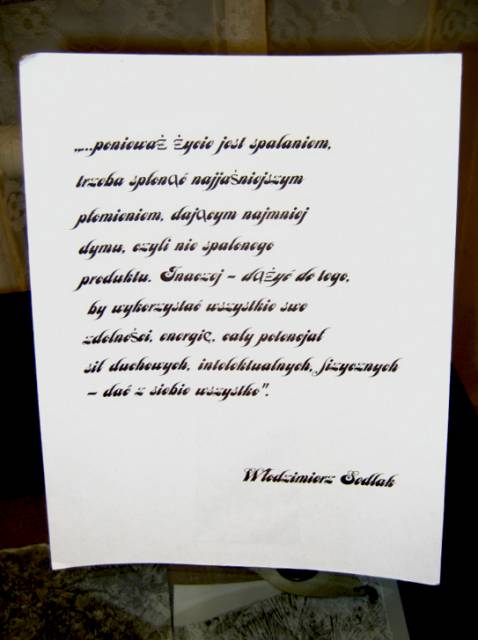 „...ponieważ życie jest spalaniem,
trzeba spłonąć najjaśniejszym
płomieniem, dającym najmniej
dymu, czyli nie spalonego
produktu. Inaczej – dążyć do tego,
by wykorzystać wszystkie swe
zdolności, energię, cały potencjał
sił duchowych, intelektualnych, fizycznych
– dać z siebie wszystko".
Włodzimierz Sedlak